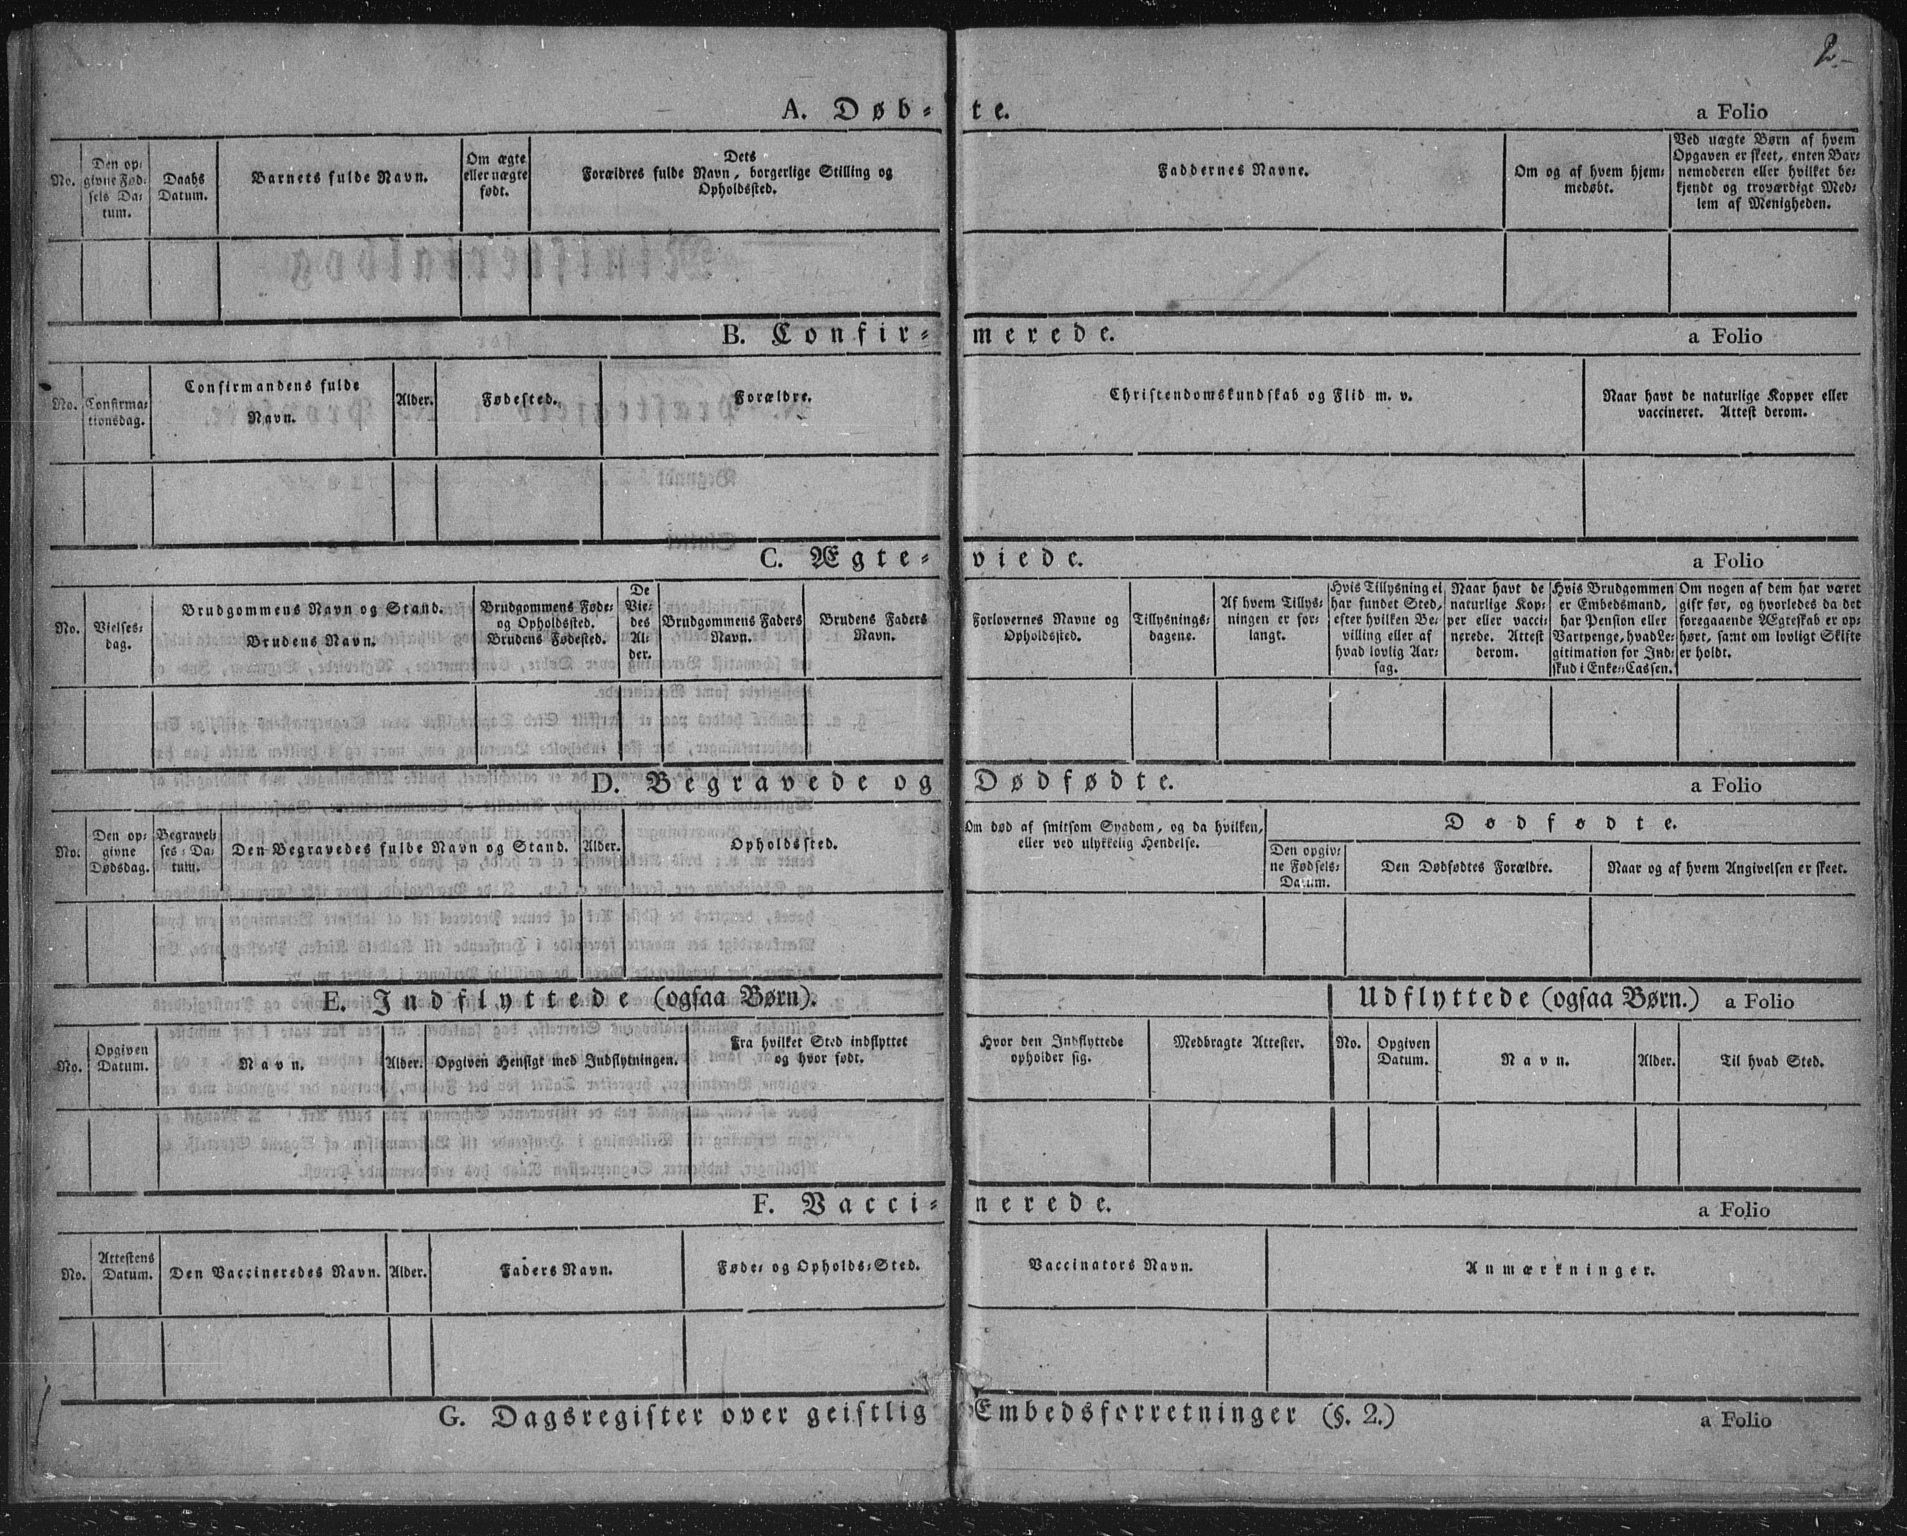 2.
A. Døb- te. a Folio
No. Den op- givne Fød- sels Da- tum. Daabs Datum. Barnets fulde Navn. Om ægte eller uægte født. Dets Forældres fulde Navn, borgerlige Stilling og Opholdssted. Faddernes Navne. Om og af hvem hjem- medøbt. Ved uægte Børn af hvem Opgaven er skeet, enten Bar- nemoderen eller hvilket be- kjendt og troværdigt Med- lem af Menigheden.
B. Confir- merede. a Folio
No. Confirma- tionsdag. Confirmandens fulde Navn. Alder. Fødested. Forældre. Christendomskundskab og Flid m. v. Naar havt de naturlige Kopper eller vaccineret. Attest derom.
C. Ægte- viede. a Folio
No. Vielses- dag. Brudgommens Navn og Stand. Brudens Navn. Brudgommens Føde- og Opholdssted. Brudens Fødested. De Vie- des Al- der. Brudgommens Faders Navn. Brudens Faders Navn. Forlovernes Navne og Opholdssted. Tillysnings- dagene. Af hvem Tillys- ningen er for- langt. Hvis Tillysning ei har fundet Sted, efter hvilken Be- villing eller af hvad lovlig Aar- sag. Naar havt de naturlige Kop- per eller vacci- nerede. Attest derom. Hvis Brudgommen er Embedsmand, har Pension eller Vartpenge, hvad Le- gitimation for Ind- skud i Enke-Cassen. Om nogen af dem har været gift før, og hvorledes da det foregaaende Ægteskab er op- hørt, samt om lovligt Skifte er holdt.
D. Begravede og Dødfødte. a Folio
No. Den op- givne Dødsdag. Begravel- ses-Da- tum. Den Begravedes fulde Navn og Stand. Alder. Opholdssted. Om død af smitsom Sygdom, og da hvilken, eller ved ulykkelig Hendelse. Dødfødte. Den opgiv- ne Fødsels- Datum. Den Dødfødtes Forældre. Naar og af hvem Angivelsen er skeet.
E. Indflyttede (ogsaa Børn). Udflyttede (ogsaa Børn.) a Folio
No. Opgiven Datum. Navn. Alder. Opgiven Hensigt med Indflytningen. Fra hvilket Sted indflyttet og hvor født. Hvor den Indflyttede opholder sig. Medbragte Attester. No. Opgiven Datum. Navn. Alder. Til hvad Sted.
F. Vacci- nerede. a Folio
No. Attestens Datum. Den Vaccineredes Navn. Alder. Faders Navn. Føde- og Opholds-Sted. Vaccinators Navn. Anmærkninger.
G. Dagsregister over geistlig Embedsforretninger (§. 2.) a Folio